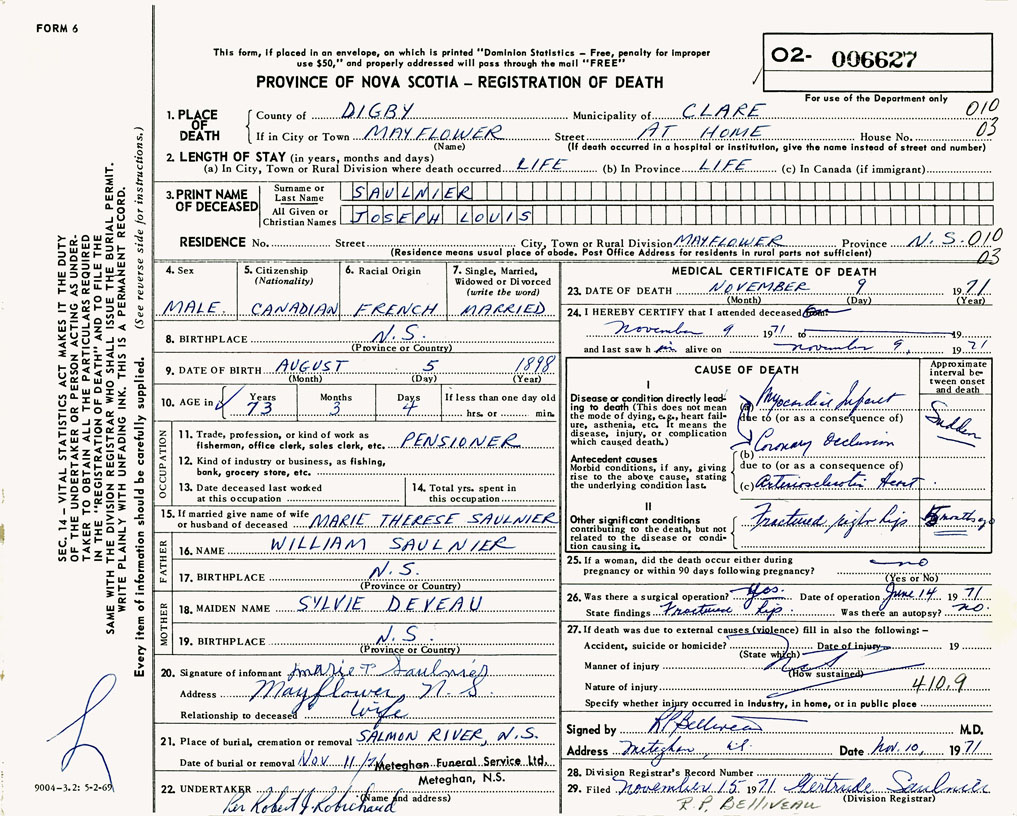 FORM 6
This form, if placed in an envelope, on which is printed "Dominion Statistics – Free, penalty for improper
use $50," and properly addressed will pass through the mail "FREE"
PROVINCE OF NOVA SCOTIA – REGISTRATION OF DEATH
02- 006627
For use of the Department only
1. PLACE OF DEATH
County of DIGBY Municipality of CLARE 010
If in City or Town MAYFLOWER Street AT HOME House No. 03
(Name) (If death occurred in a hospital or institution, give the name instead of street and number)
2. LENGTH OF STAY (in years, months and days)
(a) In City, Town or Rural Division where death occurred LIFE (b) In Province LIFE (c) In Canada (if immigrant)
3. PRINT NAME OF DECEASED
Surname or Last Name SAULNIER
All Given or Christian Names JOSEPH LOUIS
RESIDENCE No. Street City, Town or Rural Division MAYFLOWER Province N.S. 010
(Residence means usual place of abode. Post Office Address for residents in rural parts not sufficient) 03
4. Sex
MALE
5. Citizenship
(Nationality)
CANADIAN
6. Racial Origin
FRENCH
7. Single, Married,
Widowed or Divorced
(write the word)
MARRIED
8. BIRTHPLACE N.S.
(Province or Country)
9. DATE OF BIRTH AUGUST 5 1898
(Month) (Day) (Year)
10. AGE in Years Months Days If less than one day old
73 3 4 hrs. or min.
OCCUPATION
11. Trade, profession, or kind of work as
fisherman, office clerk, sales clerk, etc. PENSIONER
12. Kind of industry or business, as fishing,
bank, grocery store, etc.
13. Date deceased last worked
at this occupation
14. Total yrs. spent in
this occupation
15. If married give name of wife
or husband of deceased MARIE THERESE SAULNIER
FATHER
16. NAME WILLIAM SAULNIER
17. BIRTHPLACE N.S.
(Province or Country)
MOTHER
18. MAIDEN NAME SYLVIE DEVEAU
19. BIRTHPLACE N.S.
(Province or Country)
20. Signature of informant Marie T Saulnier
Address Mayflower, N.S.
Relationship to deceased Wife
21. Place of burial, cremation or removal SALMON RIVER, N.S.
Date of burial or removal Nov 11/71 Meteghan Funeral Service Ltd.
Meteghan, N.S.
22. UNDERTAKER (Name and address)
Per Robert J Robichaud
MEDICAL CERTIFICATE OF DEATH
23. DATE OF DEATH NOVEMBER 9 1971
(Month) (Day) (Year)
24. I HEREBY CERTIFY that I attended deceased
November 9 1971 to 19
and last saw him alive on November 9, 1971
CAUSE OF DEATH
Approximate interval between onset and death
I
Disease or condition directly leading to death (This does not
mean the mode of dying, e.g., heart failure, asthenia, etc. It means the
disease, injury, or complication
which caused death.)
(a) Myocardial Infarct
due to (or as a consequence of)
Sudden
Antecedent causes
Morbid conditions, if any, giving
rise to the above cause, stating
the underlying condition last.
(b) Coronary Occlusion
due to (or as a consequence of)
(c) Arteriosclerotic Heart
II
Other significant conditions
contributing to the death, but not
related to the disease or condition causing it.
Fractured right hip 5 months ago
25. If a woman, did the death occur either during
pregnancy or within 90 days following pregnancy? no
(Yes or No)
26. Was there a surgical operation? Yes. Date of operation June 14 1971
State findings Fractured hip. Was there an autopsy? no.
27. If death was due to external causes (violence) fill in also the following: –
Accident, suicide or homicide? Date of injury 19
(State which)
Manner of injury
(How sustained)
Nature of injury 410.9
Specify whether injury occurred in industry, in home, or in public place
Signed by R P Belliveau M.D.
Address Meteghan, Date Nov. 10, 1971
28. Division Registrar's Record Number
29. Filed November 15 1971 Gertrude Saulnier
(Division Registrar)
R.P. BELLIVEAU
SEC. 14 – VITAL STATISTICS ACT MAKES IT THE DUTY
OF THE UNDERTAKER OR PERSON ACTING AS UNDER-
TAKER TO OBTAIN ALL THE PARTICULARS REQUIRED
IN THE "REGISTRATION OF DEATH" AND TO FILE THE
SAME WITH THE DIVISION REGISTRAR WHO SHALL ISSUE THE BURIAL PERMIT.
WRITE PLAINLY WITH UNFADING INK. THIS IS A PERMANENT RECORD.
Every item of information should be carefully supplied. (See reverse side for instructions.)
9004-3.2: 5-2-69